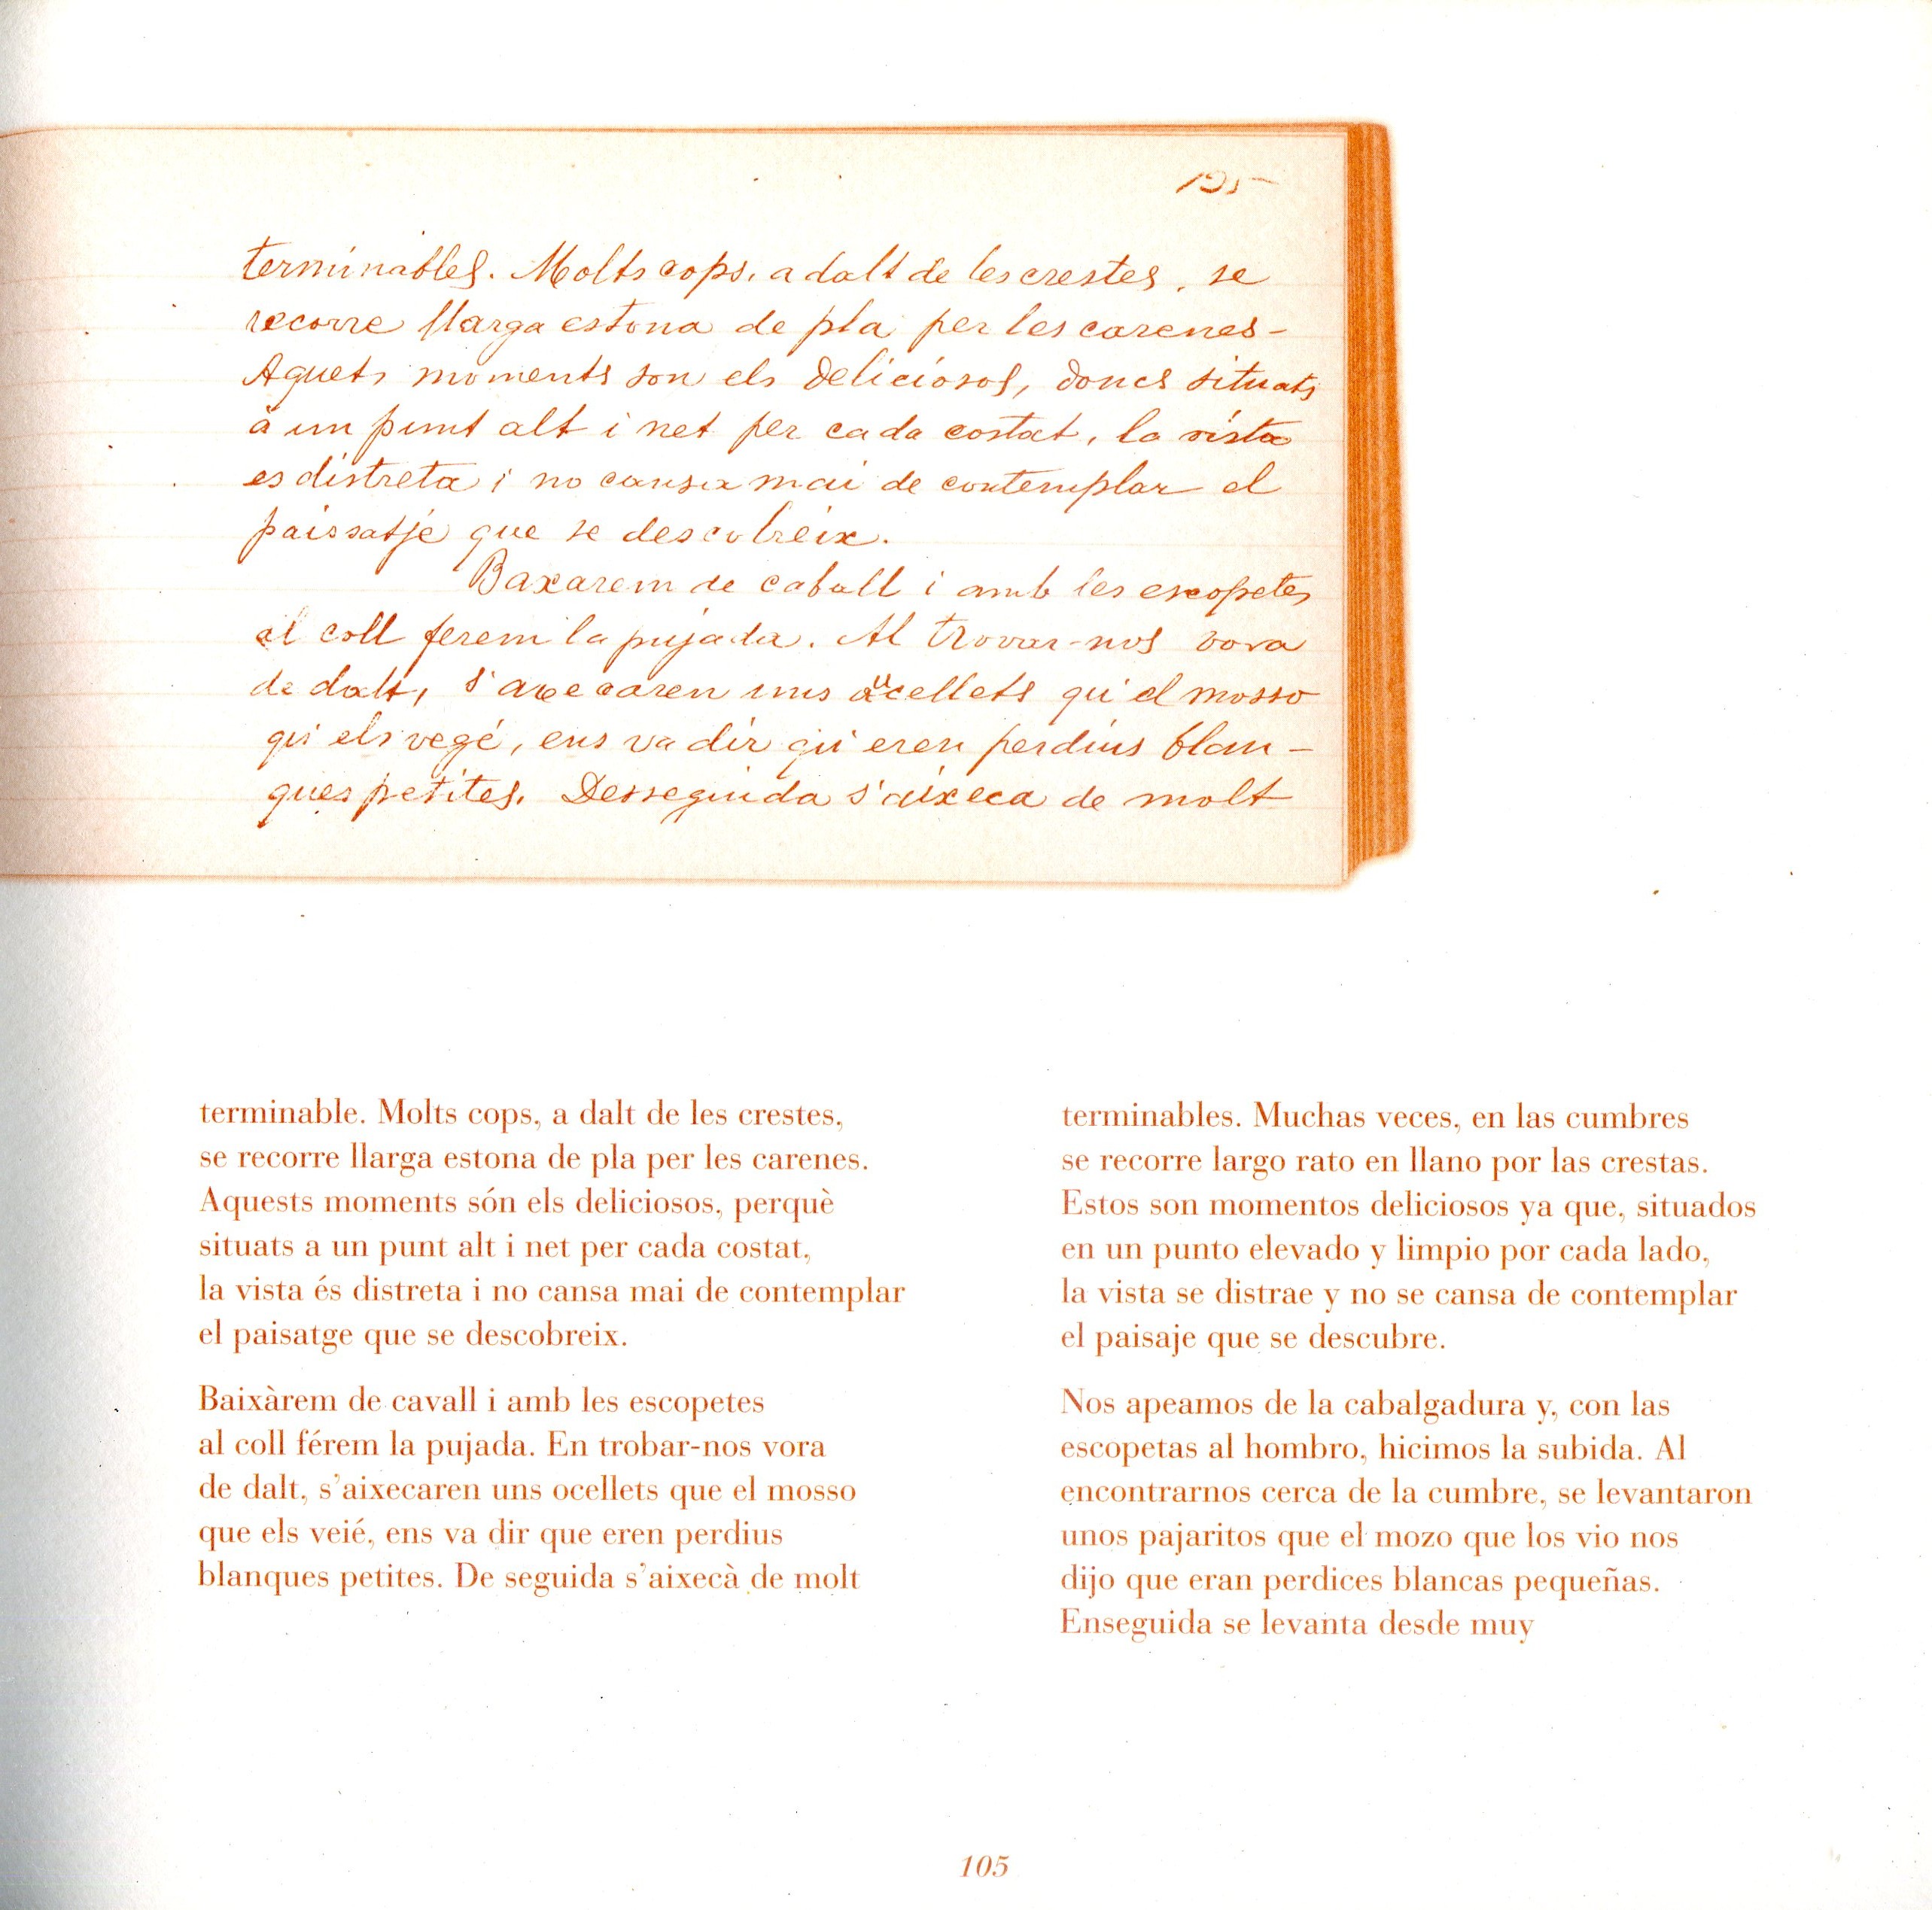 195
terminables. Molts cops, a dalt de les crestes, se
recorre llarga estona de pla per les carenes-
Aquets moments son els deliciosos, doncs situats
à un punt alt i net per cada costat, la vista
es distreta i no cansa mai de contemplar el
paissatje que se descobreix.
Baxarem de caball i amb les escopetes
al coll ferem la pujada. Al trovar-nos vora
de dalt, s'axecaren uns aucellets qu'el mosso
qu'els vegé, ens va dir qu'eren perdius blan-
ques petites. Desseguida s'aixeca de molt
terminable. Molts cops, a dalt de les crestes,
se recorre llarga estona de pla per les carenes.
Aquests moments són els deliciosos, perquè
situats a un punt alt i net per cada costat,
la vista és distreta i no cansa mai de contemplar
el paisatge que se descobreix.
Baixàrem de cavall i amb les escopetes
al coll férem la pujada. En trobar-nos vora
de dalt, s'aixecaren uns ocellets que el mosso
que els veié, ens va dir que eren perdius
blanques petites. De seguida s'aixecà de molt
terminables. Muchas veces, en las cumbres
se recorre largo rato en llano por las crestas.
Estos son momentos deliciosos ya que, situados
en un punto elevado y limpio por cada lado,
la vista se distrae y no se cansa de contemplar
el paisaje que se descubre.
Nos apeamos de la cabalgadura y, con las
escopetas al hombro, hicimos la subida. Al
encontrarnos cerca de la cumbre, se levantaron
unos pajaritos que el mozo que los vio nos
dijo que eran perdices blancas pequeñas.
Enseguida se levanta desde muy
105